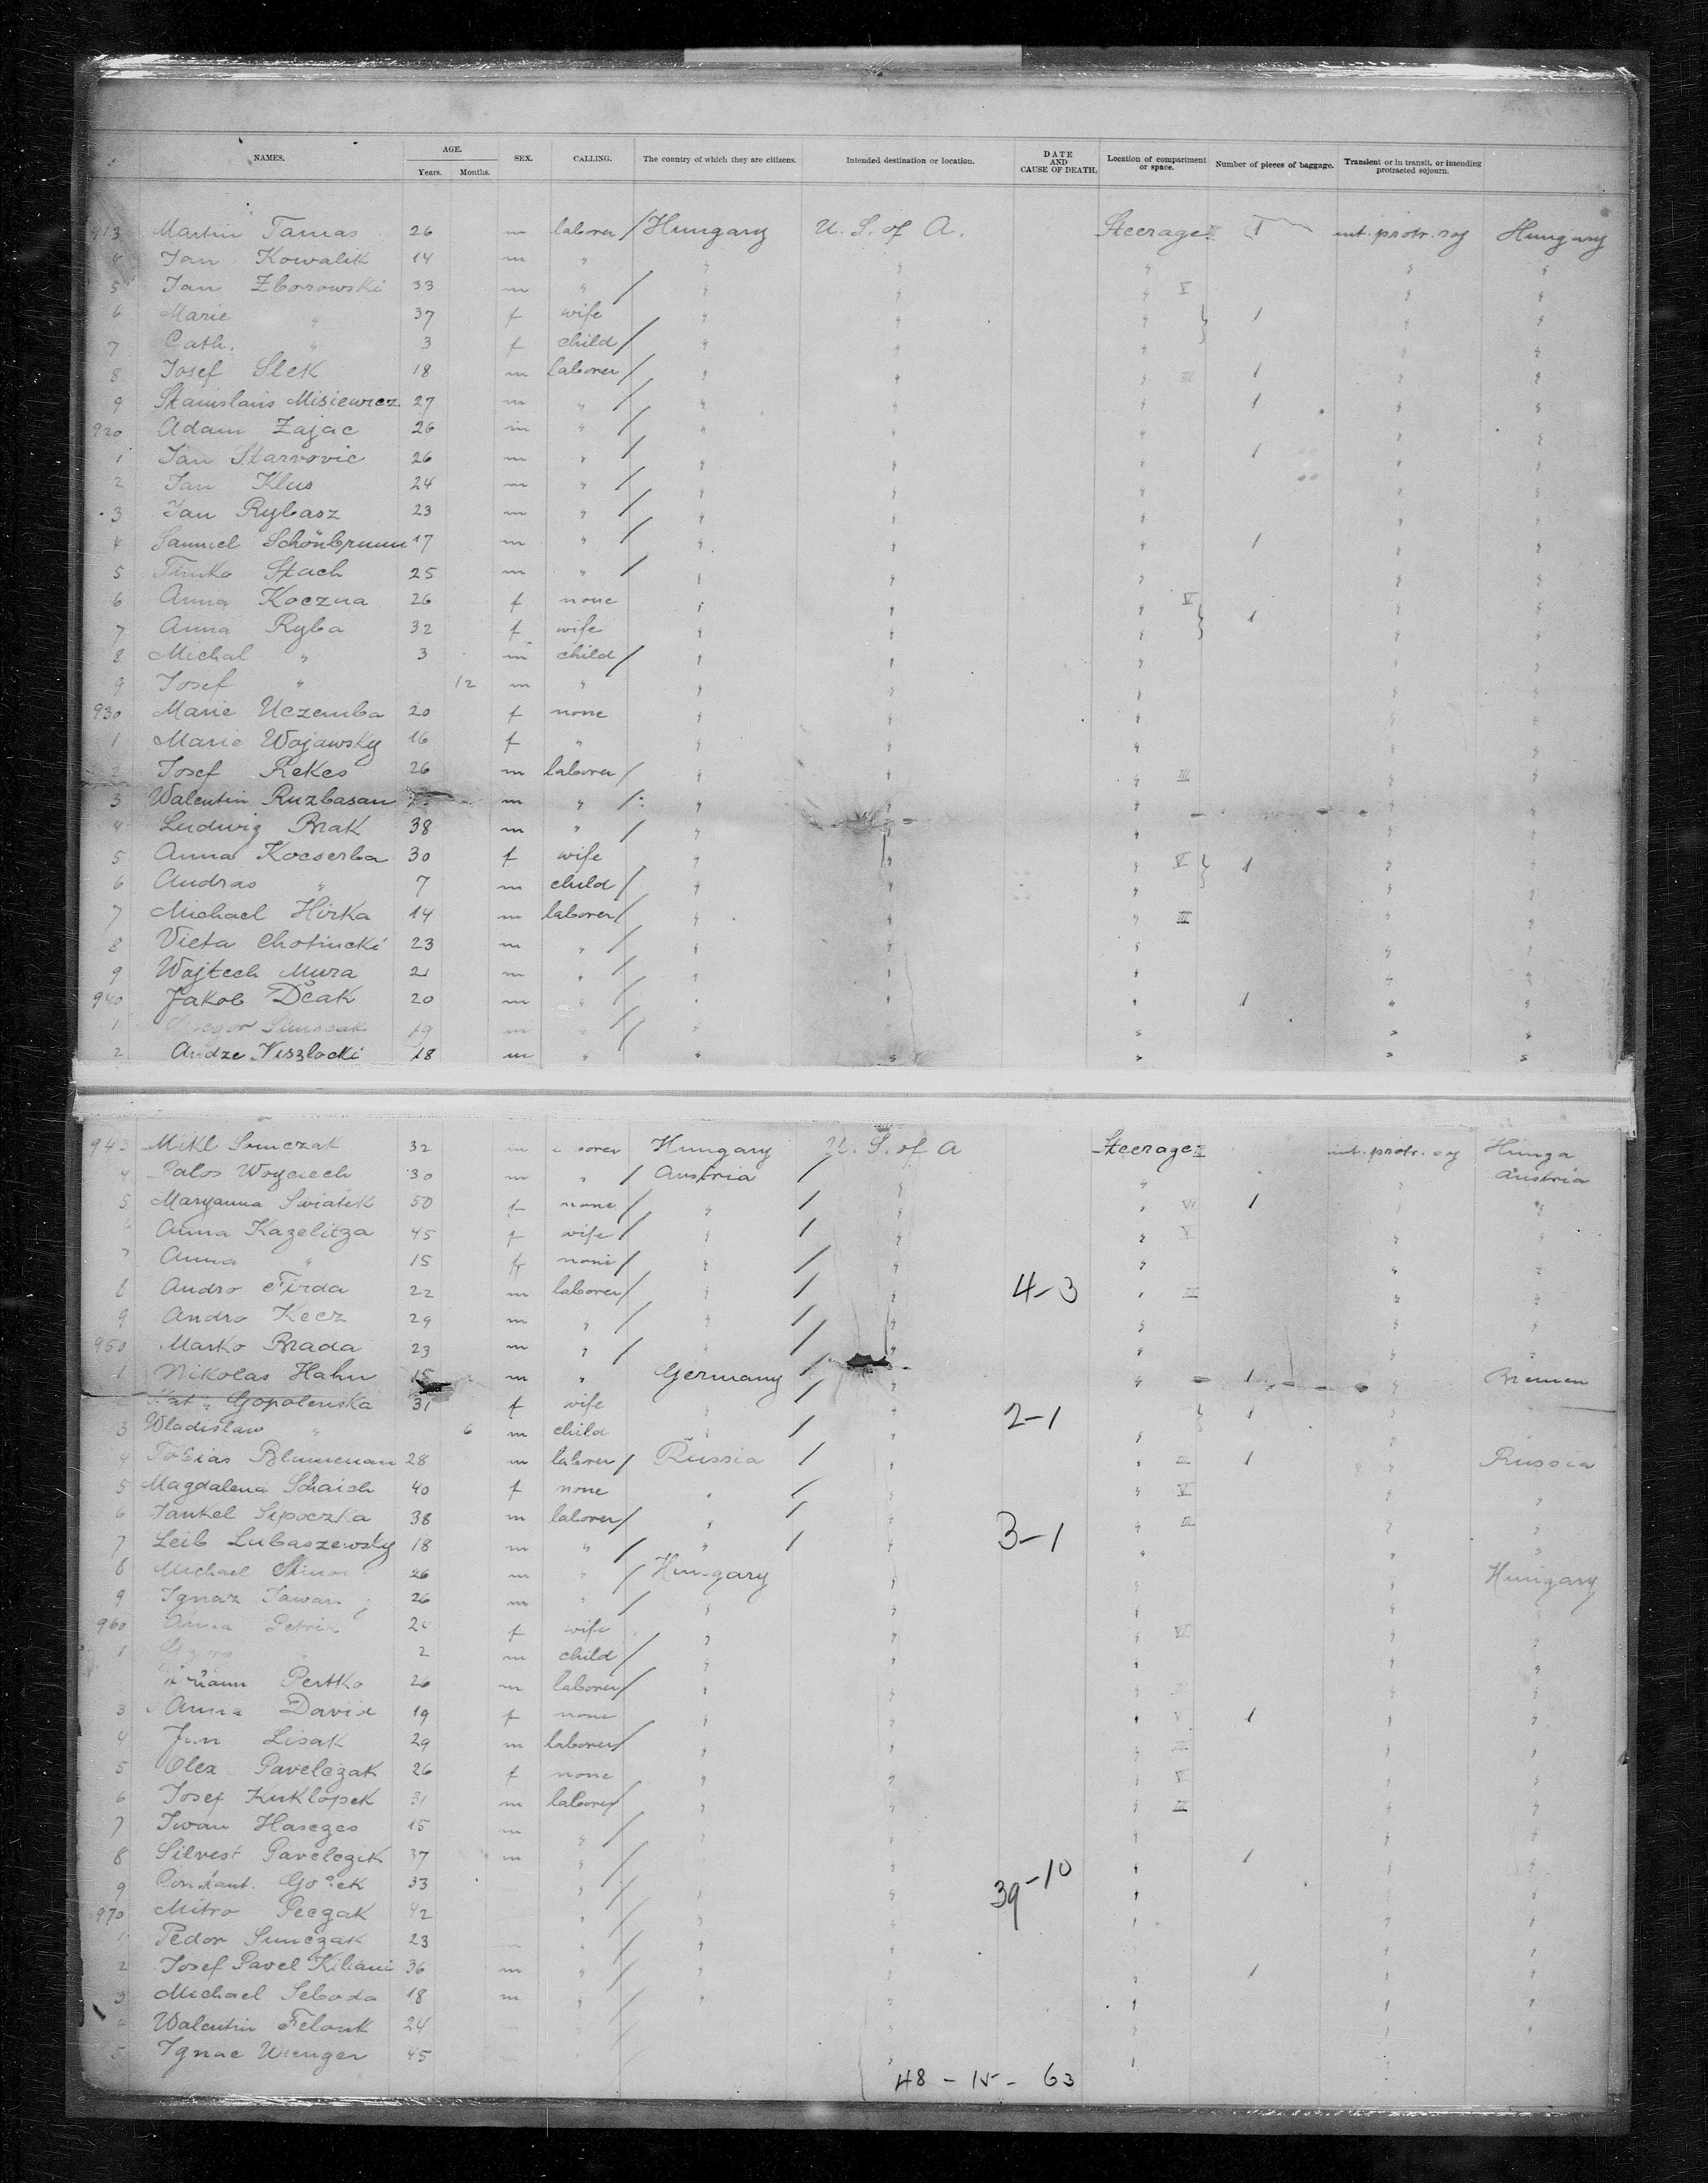 NAMES. AGE. Years. Months. SEX. CALLING. The country of which they are citizens. Intended destination or location. DATE AND CAUSE OF DEATH. Location of compartment or space. Number of pieces of baggage. Transient or in transit, or intending protracted sojourn.
913 Martin Tamas 26 m laborer / Hungary U. S. of A. Steerage III 1 int. protr. soj Hungary
4 Jan Kowalik 14 m " " " " " "
5 Jan Zborowski 33 m " / " " " V " "
6 Marie " 37 f wife " " " } 1 " "
7 Cath. " 3 f child / " " " " "
8 Josef Slek 18 m laborer / " " " III 1 " "
9 Stanislaus Misiewicz 27 m " / " " " 1 " "
920 Adam Zajac 26 m " / " " " " "
1 Jan Starvovic 26 m " / " " " 1 " "
2 Jan Klus 24 m " / " " " " "
3 Jan Rybasz 23 m " / " " " " "
4 Samuel Schönbrunn 17 m " / " " " 1 " "
5 Timko Stach 25 m " / " " " " "
6 Anna Koczna 26 f none " " " V } 1 " "
7 Anna Ryba 32 f wife " " " " "
8 Michal " 3 m child / " " " " "
9 Josef " 12 m " " " " " "
930 Marie Uczemba 20 f none " " " " "
1 Marie Wojawsky 16 f " " " " " "
2 Josef Rekes 26 m laborer / " " " III " "
3 Walentin Ruzbasan m " / " " " " "
4 Ludwig Brak 38 m " / " " " " "
5 Anna Kocserba 30 f wife " " " V } 1 " "
6 Andras " 7 m child / " " " " "
7 Michael Hirka 14 m laborer / " " " III " "
8 Vieta Chotincki 23 m " / " " " " "
9 Wojtech Mura 21 m " / " " " " "
940 Jakob Dčak 20 m " / " " " 1 " "
1 19 m " / " " " " "
2 Andze Kiszlocki 18 m " " " " " "
943 Mikl Simczak 32 m Hungary U. S. of A Steerage III int. protr. soj Hunga
4 Palos Woyciech 30 m " / Austria / " " " Austria
5 Maryanna Swiatek 50 f none / " / " " VI 1 " "
Anna Kazelitza 45 f wife / " / " " V " "
7 Anna " 15 f none / " / " " " "
8 Andro Firda 22 m laborer / " / " 4-3 " III " "
9 Andro Kecz 29 m " / " / " " " "
950 Marko Brada 23 m " / " / " " " "
1 Nikolas Hahn 15 m " Germany / " " 1 " Bremen
Gopolenska 31 f wife " / " } 1 " "
3 Wladislaw " 6 m child " / " 2-1 " "
4 Tobias Blumenau 28 m laborer / Russia / " " III 1 " Russia
5 Magdalena Schaich 40 f none " / " " V " "
6 Jankel Sipoczka 38 m laborer / " / " " III " "
7 Leib Lubaszewsky 18 m " / " / " 3-1 " " "
8 Michael 26 m " / Hungary " " " Hungary
9 Ignaz 26 m " / " " " "
960 Anna Petrik f wife " " " VI " "
1 2 m child / " " " " "
Pertko 26 m laborer / " " " " "
3 Anna David 19 f none " " " V 1 " "
4 Jan Lisak 29 m laborer / " " " III " "
5 Olex Pavelczak 26 f none " " " V " "
6 Josef Kuklopek 31 m laborer " " " III " "
7 Iwan Hasczes 15 m " / " " " " "
8 Silvest Pavelczik 37 m " / " " 1 " "
9 33 " / " " 39-10 " " "
970 Mitro Peczak 42 " / " " " " "
1 Pedor Simczak 23 " / " " "
2 Josef Pavel Kiliani 36 m " / " " 1 " "
3 Michael Seboda 18 m " / " " " " "
4 Walentin Felonk 24 " " " "
5 Ignac Wienger 45 " " "
48 - 15 - 63